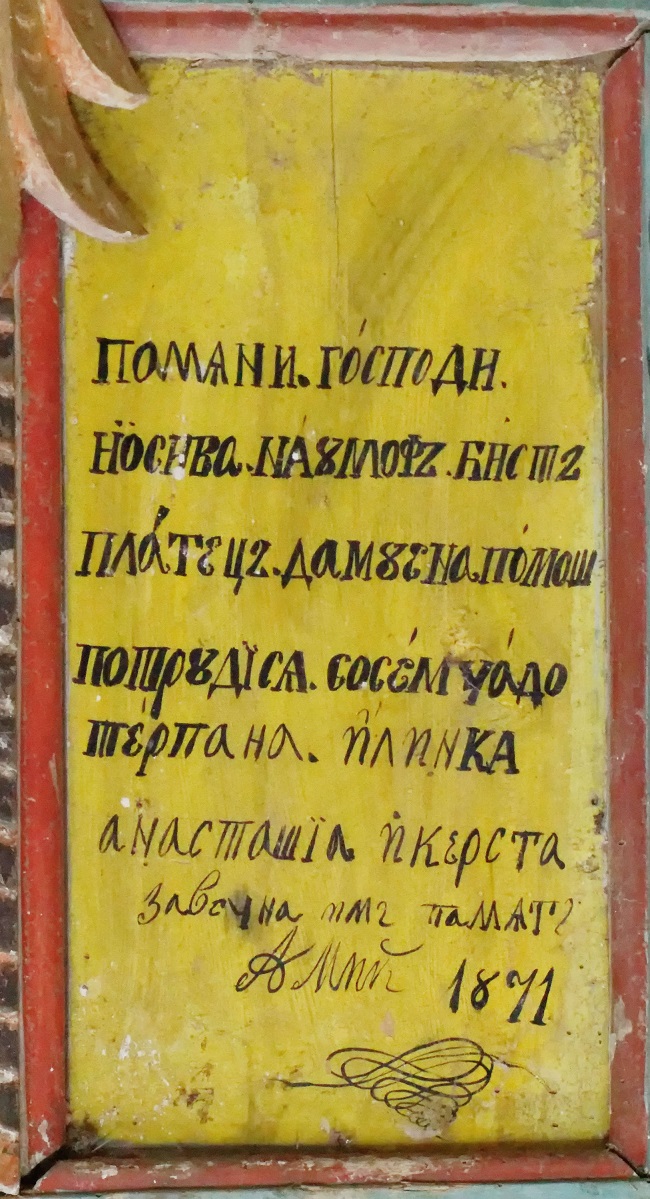 ПОМѦНИ. ГО́СПОДИ.
ИЇО́СИВА. НА́ꙋМОФЪ. БИСТЪ
ПЛА́ТЕЦЪ. ДАМꙋЕ НА ПО́МОШ
ПОТРꙋДЇСѦ. СОСЕ́М ЧА́ДО
ТЕ́РПАНА. ИЛИНКА
АНАСТАШЇА ИКЕРСТА
ЗАВЕЧНА ИМЪ ПАМѦТЪ
АМИЙ 1871